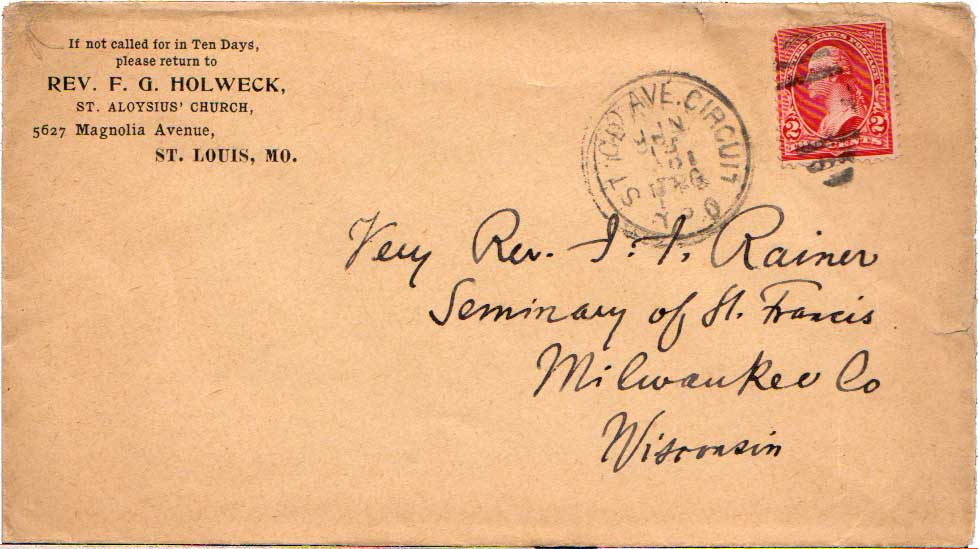 If not called for in Ten Days,
please return to
REV. F. G. HOLWECK,
ST. ALOYSIUS' CHURCH,
5627 Magnolia Avenue,
ST. LOUIS, MO.
AVE. CIRCUIT
UNITED STATES POSTAGE
2 2
CENTS
Very Rev. J. J. Rainer
Seminary of St. Francis
Milwaukee Co
Wisconsin